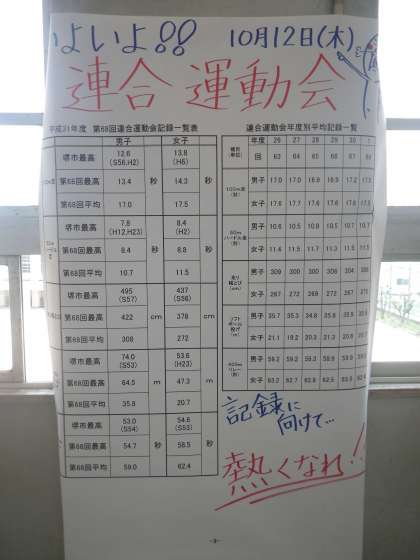 いよいよ!! 10月12日(木)
連合 運動会
平成31年度 第68回連合運動会記録一覧表
男子 女子
堺市最高 12.6 (S56,H2) 秒 13.8 (H6) 秒
第68回最高 13.4 14.3
第68回平均 17.0 17.5
堺市最高 7.8 (H12,H23) 秒 8.4 (H2) 秒
第68回最高 8.4 8.8
第68回平均 10.7 11.5
堺市最高 495 (S57) cm 437 (S56) cm
第68回最高 422 378
第68回平均 308 272
堺市最高 74.0 (S53) m 53.6 (H23) m
第68回最高 64.5 47.3
第68回平均 35.8 20.7
堺市最高 53.0 (S54) 秒 54.6 (S53) 秒
第68回最高 54.7 58.5
第68回平均 59.0 62.4
連合運動会年度別平均記録一覧
種目 (単位) 年度 26 27 28 29 30
回 63 64 65 66 67 68
100m走 (秒) 男子 17.0 17.0 16.8 16.9 17.2
女子 17.6 17.7 17.6
80mハードル走 (秒) 男子 10.6 10.5 10.8 10.5 10.7 10.7
女子 11.4 11.5 11.7 11.3 11.5
走り幅とび (cm) 男子 309 300 300 304
女子 267 272 269 272 267
ソフトボール投げ (m) 男子 35.7 35.3 34.8 35.8
女子 21.1 19.2 20.3
400mリレー (秒) 男子 59.2 59.2 59.3
女子 63.2 62.7 62.8 62.5
記録に
向けて…
熱くなれ!!
-3-